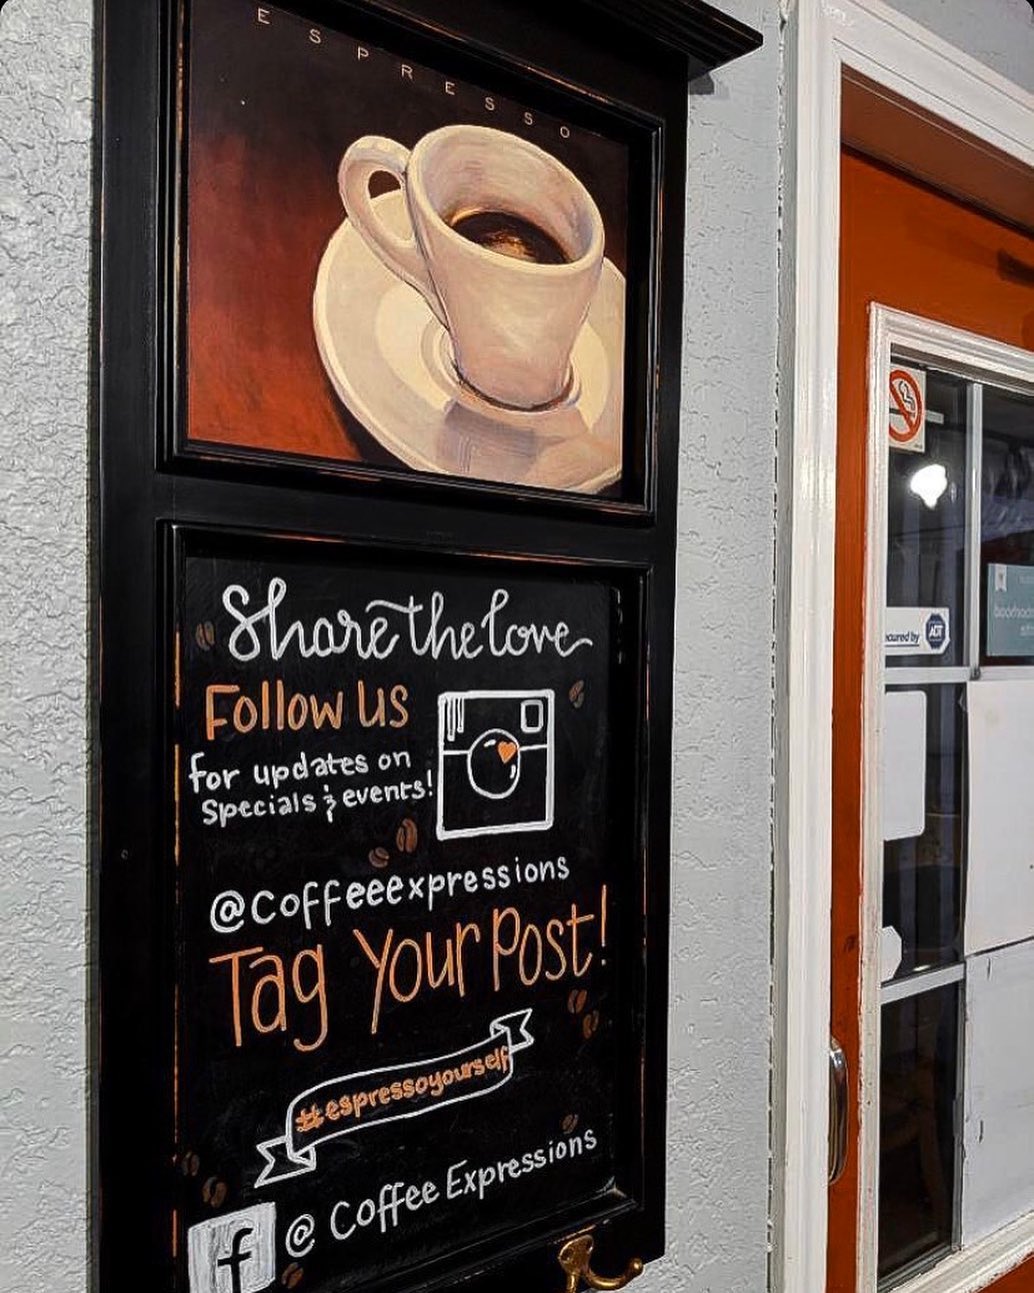 ESPRESSO
Share the love
Follow us
for updates on
Specials & events!
@coffeeexpressions
Tag Your Post!
#espressoyourself
f @ Coffee Expressions
ecured by ADT